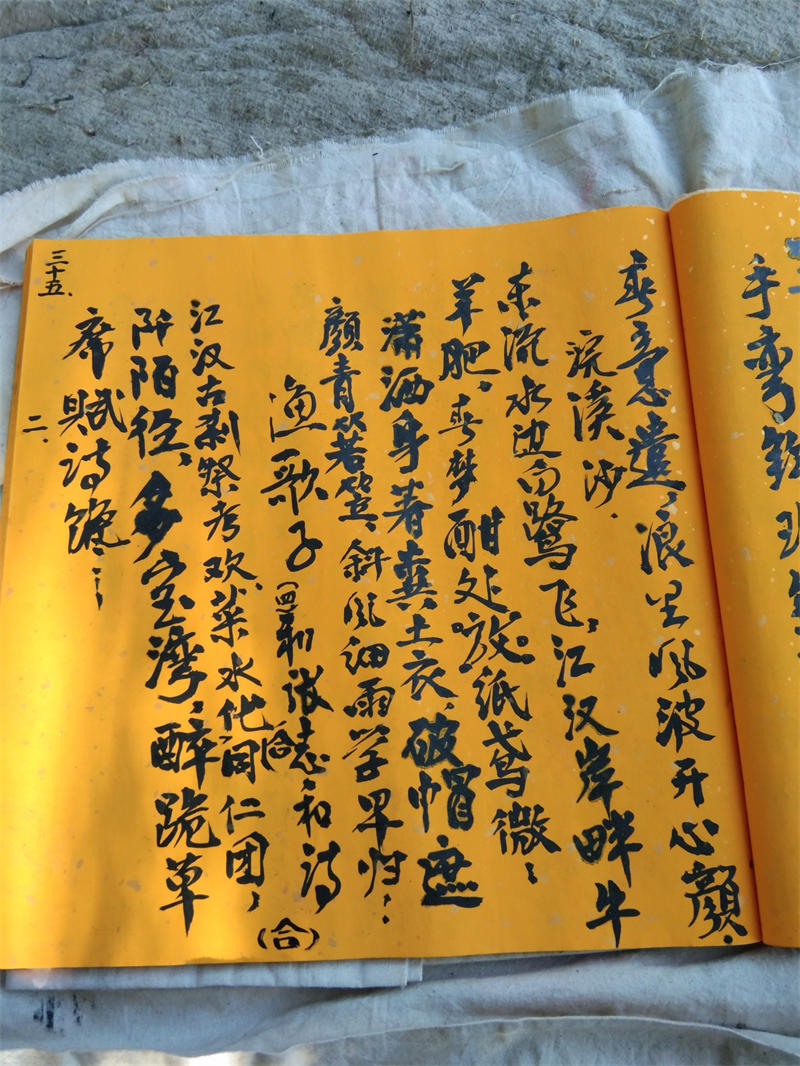 手弯
春意遣，浪里风波开心颜．
浣溪沙．
东流水边白鹭飞，江汉岸畔牛
羊肥、春梦酣处放纸鸢微：
潇洒身著粪土衣、破帽遮
颜青箬笠、斜风细雨学早归：
渔歌子（四）和张志和诗
江汉古刹祭考欢、菜水化间仁团，（合）
（合）
阡陌径、多宝湾，醉跪草
席赋诗馋：
二、
三十五．